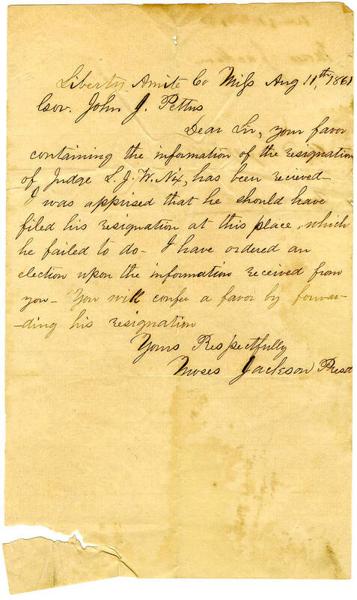 Liberty Amite Co Miss Aug 11th, 1861
Gov. John J. Pettus
Dear Sir, your favor
containing the information of the resignation
of Judge L. J. W. Nix, has been recieved-
I was apprised that he should have
filed his resignation at this place, which
he failed to do- I have ordered an
election upon the information received from
you- You will confer a favor by forwar-
-ding his resignation
Yours Respectfully
Moses Jackson Prest